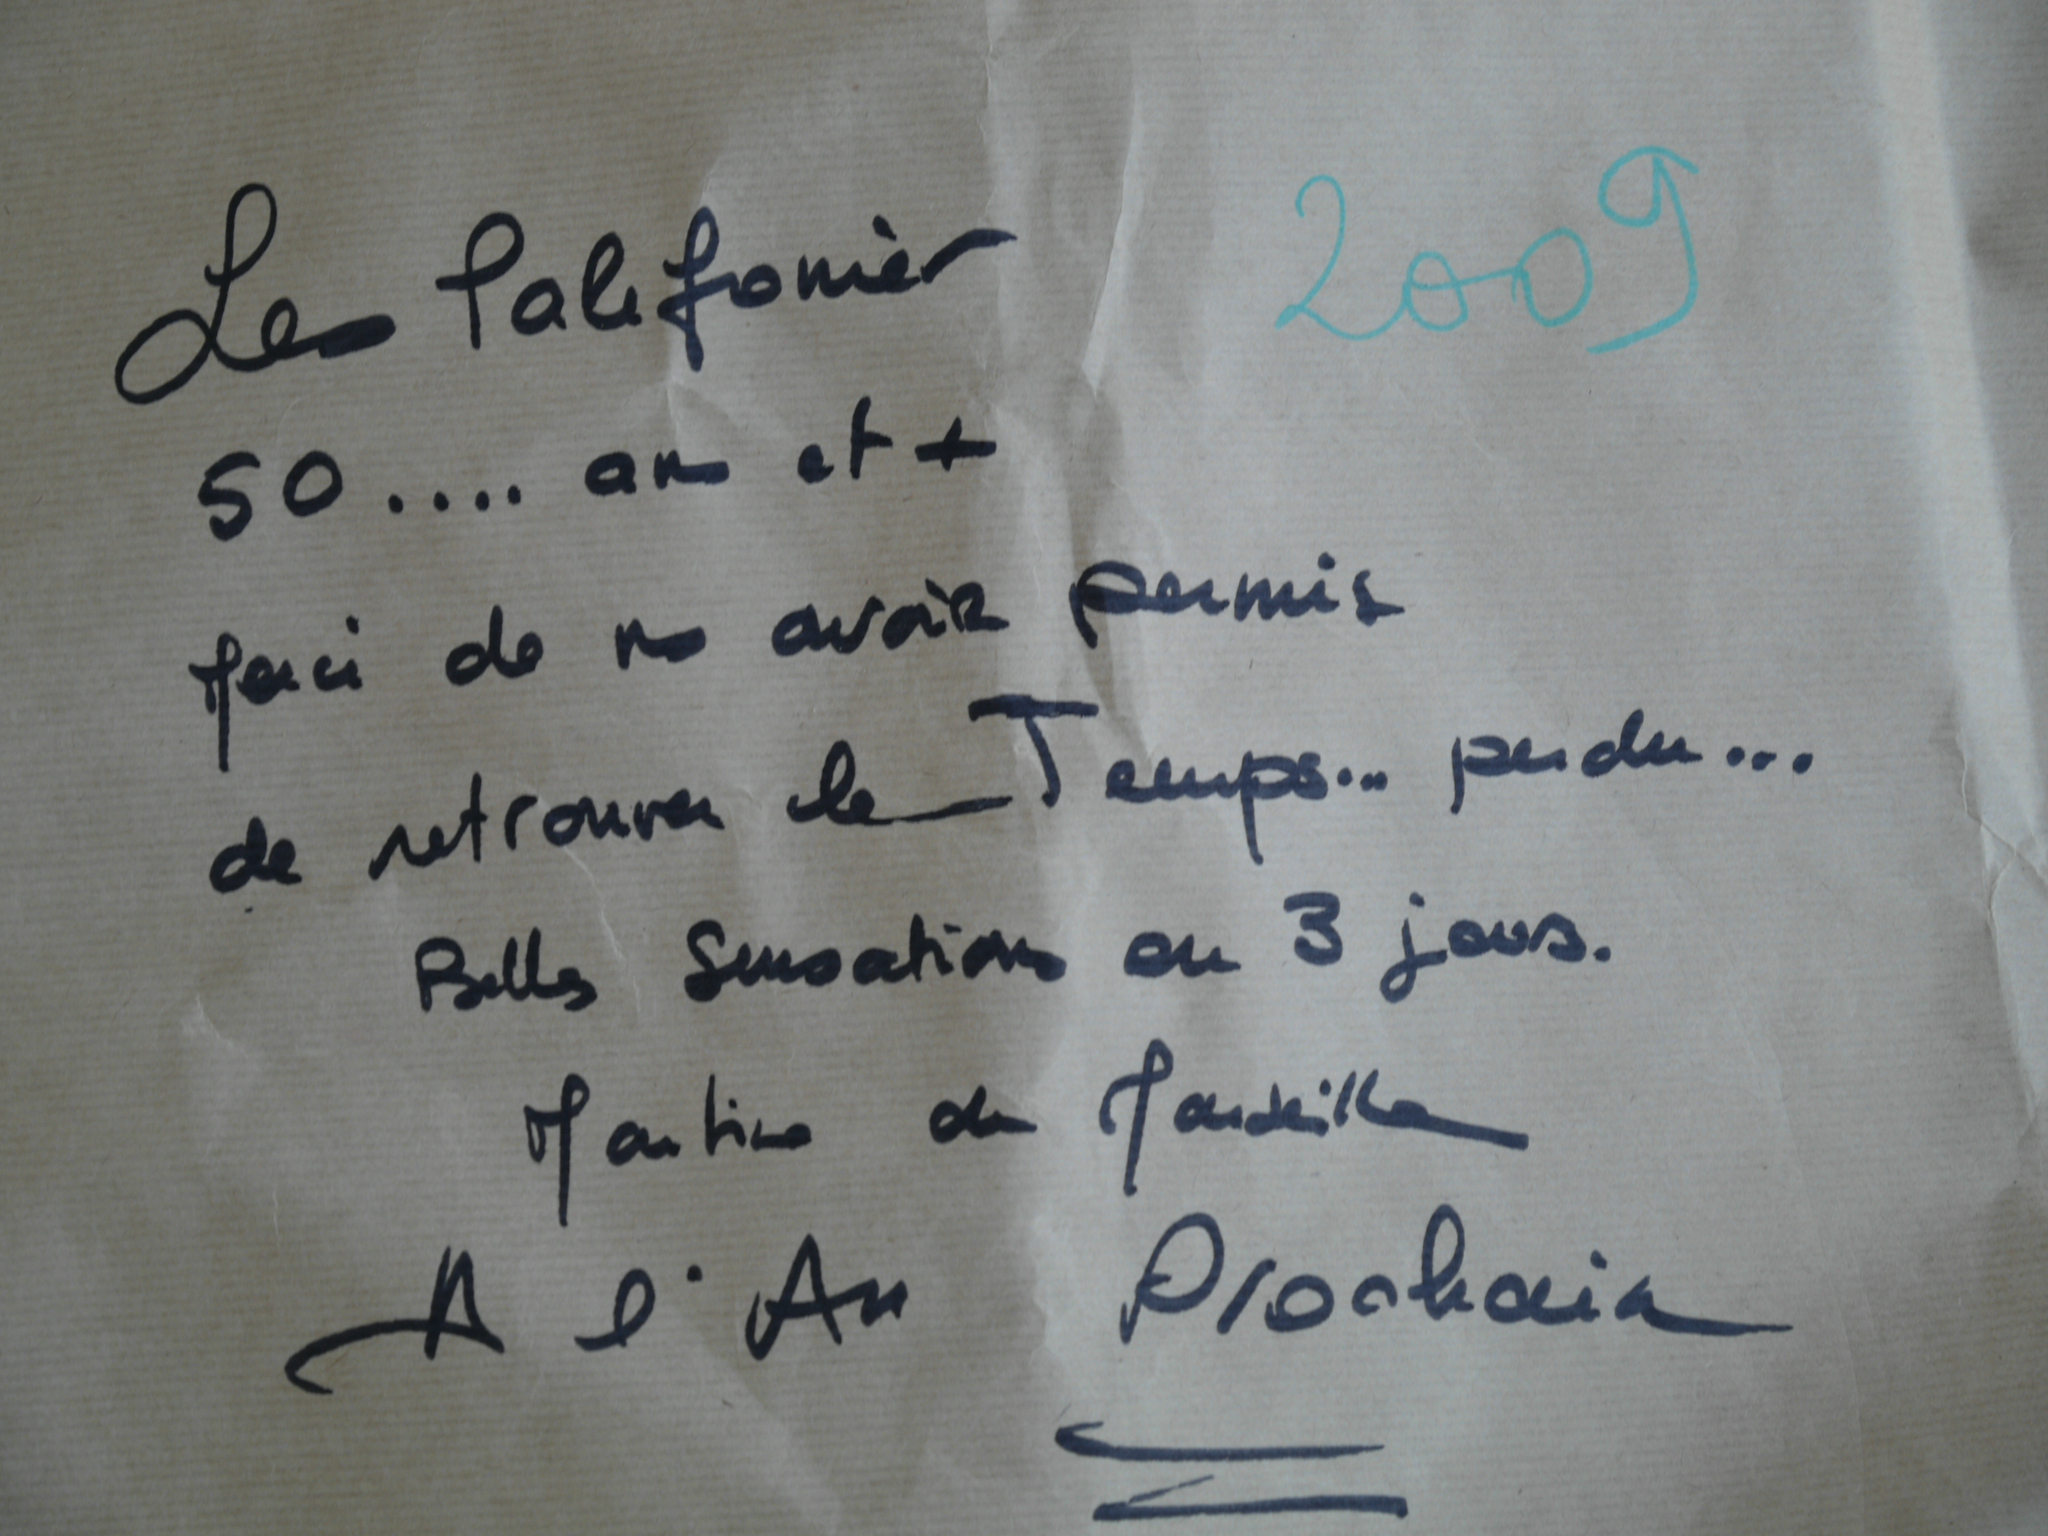 Les Palefrenier 2009
50.... ans et +
Merci de ns avoir permis
de retrouver le Temps... perdu...
Belles Sensations en 3 jours.
Martine de Marseille
A l'An Prochain